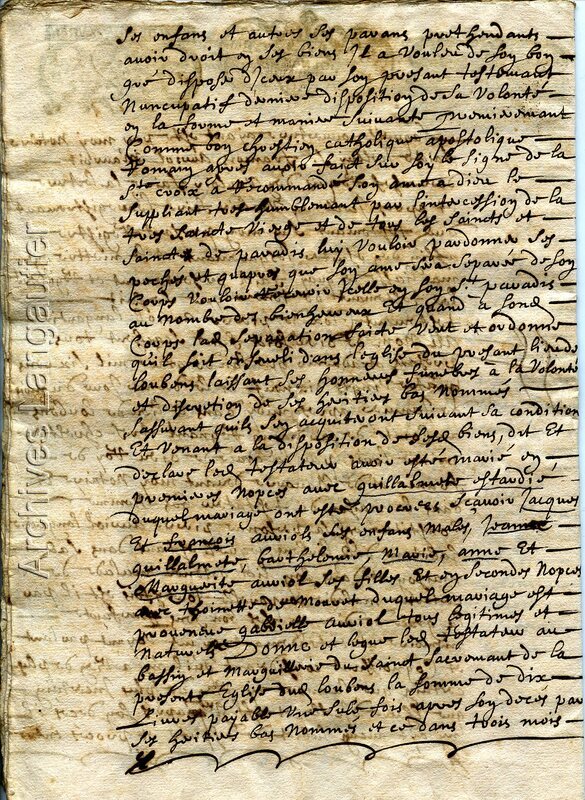 ses enfans et autres ses parans prethendants
avoir droit en ses biens Il a voulleu de son bon
gre dispose d'Iceux par son presant testemant
Nuncupatif derniere disposition de sa volonté
en la forme et maniere suivante Premieremant
Comme bon chrestien catholique apostolique
Romain apres avoir faict sur soy le signe de la
Ste croix a recommandé son ame a dieu le
suppliant tres humblemant par lintercession de la
tres saincte Vierge et de tous les saincts et
sainctes de paradis luy vouloir pardonner ses
pechés et quapres que son ame sera separée de son
Corps vouloir recevoir Icelle en son st paradis
au nombre des bienheureux Et quand a sond
Corps lad separation faicte veut et ordonne
quil soit enseveli dans leglise du presant lieu de
loubens laissant ses honneurs funebres a la volonté
et discretion de ses heritiers bas Nommés
sassurant quils sen acquiteront suivant sa condition
Et venant a la disposition de sesd biens, dit Et
declare led testateur avoir esté marié en
premieres Nopces avec guillalmete estardie
duquel mariage ont estés procrées scavoir Jacques
Et françois auriols ses enfans Males, Jeanne
guillalmete, barthelemie Marie, anne Et
Marguerite auriol ses filles, Et en secondes Nopces
avec thoinette de Mouret duquel mariage est
provenue gabrielle auriol tous legitimes et
Naturels Donne et legue led testateur au
bassin et Marguillerie du sainct sacremant de la
presente Eglise dud loubens la somme de dix
Livres payable Une sule fois apres son deces par
ses heritiers bas Nommés et ce dans trois mois
Archives Langautier